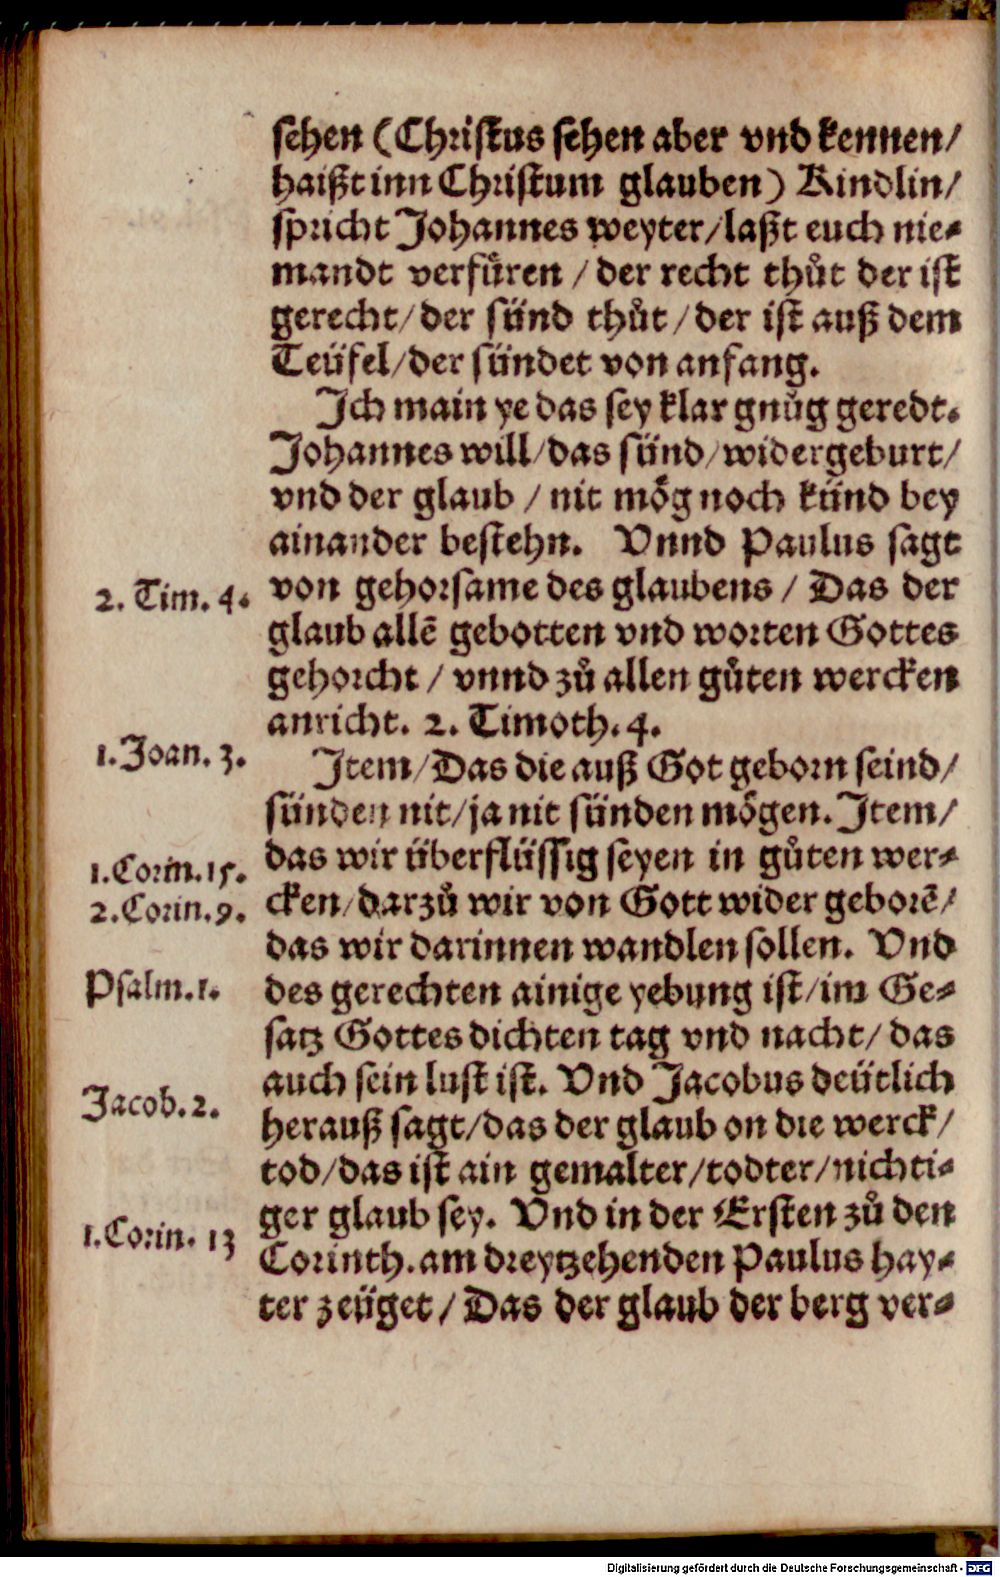 sehen (Christus sehen aber vnd kennen/
haißt inn Christum glauben) Kindlin/
spricht Johannes weyter/laßt euch nie⸗
mandt verfüren / der recht thůt der ist
gerecht/der sünd thůt/der ist auß dem
Teüfel/der sündet von anfang.
Ich main ye das sey klar gnůg geredt.
Johannes will/das sünd/widergeburt/
vnd der glaub / nit mög noch künd bey
ainander bestehn. Vnnd Paulus sagt
2. Tim. 4.
von gehorsame des glaubens / Das der
glaub allē gebotten vnd worten Gottes
gehorcht / vnnd zů allen gůten wercken
anricht. 2. Timoth. 4.
1. Joan. 3.
Item/Das die auß Got geborn seind/
sünden nit/ja nit sünden mögen. Item/
1. Corin. 15.
das wir überflüssig seyen in gůten wer⸗
2. Corin. 9.
cken/darzů wir von Gott wider geborē/
das wir darinnen wandlen sollen. Vnd
Psalm. 1.
des gerechten ainige yebung ist/im Ge⸗
satz Gottes dichten tag vnd nacht/das
auch sein lust ist. Vnd Jacobus deütlich
Jacob. 2.
herauß sagt/das der glaub on die werck/
tod/das ist ain gemalter/todter/nichti⸗
ger glaub sey. Vnd in der Ersten zů den
1. Corin. 13
Corinth. am dreytzehenden Paulus hay⸗
ter zeüget / Das der glaub der berg ver⸗
Digitalisierung gefördert durch die Deutsche Forschungsgemeinschaft - DFG